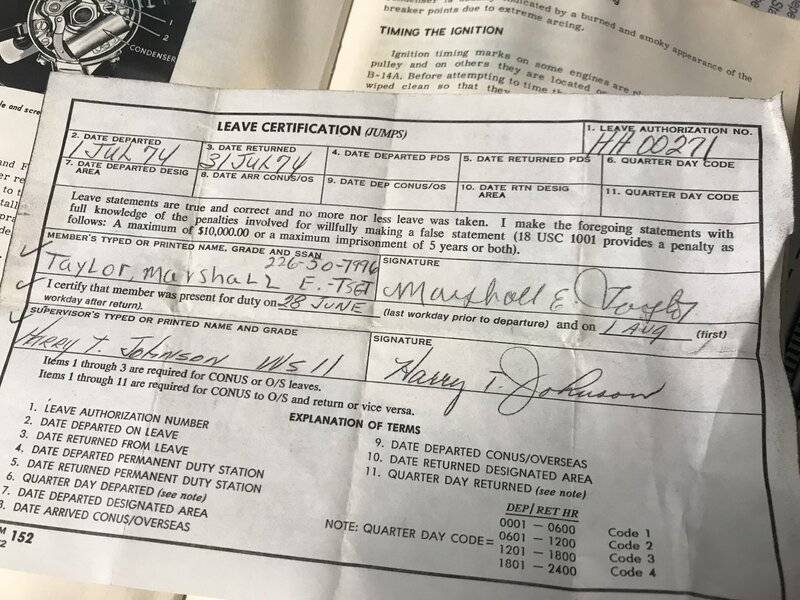 CONDENSER
breaker points due to extreme arcing.
indicated by a burned and smoky appearance of the
TIMING THE IGNITION
Ignition timing marks on some engines are
pulley and on others they are located
B-14A. Before attempting to time
wiped clean so that they
LEAVE CERTIFICATION (JUMPS)
1. LEAVE AUTHORIZATION NO.
HH00271
2. DATE DEPARTED
1 JUL 74
3. DATE RETURNED
31 JUL 74
4. DATE DEPARTED PDS
5. DATE RETURNED PDS
6. QUARTER DAY CODE
7. DATE DEPARTED DESIG AREA
8. DATE ARR CONUS/OS
9. DATE DEP CONUS/OS
10. DATE RTN DESIG AREA
11. QUARTER DAY CODE
Leave statements are true and correct and no more nor less leave was taken. I make the foregoing statements with
full knowledge of the penalties involved for willfully making a false statement (18 USC 1001 provides a penalty as
follows: A maximum of $10,000.00 or a maximum imprisonment of 5 years or both).
MEMBER'S TYPED OR PRINTED NAME, GRADE AND SSAN
226-30-7996
Taylor, Marshall E.-TSGT
SIGNATURE
Marshall E. Taylor
I certify that member was present for duty on 28 JUNE (last workday prior to departure) and on 1 AUG (first)
workday after return).
SUPERVISOR'S TYPED OR PRINTED NAME AND GRADE
Harry T. Johnson WS11
SIGNATURE
Harry T. Johnson
Items 1 through 3 are required for CONUS or O/S leaves.
Items 1 through 11 are required for CONUS to O/S and return or vice versa.
EXPLANATION OF TERMS
1. LEAVE AUTHORIZATION NUMBER
2. DATE DEPARTED ON LEAVE
3. DATE RETURNED FROM LEAVE
4. DATE DEPARTED PERMANENT DUTY STATION
5. DATE RETURNED PERMANENT DUTY STATION
6. QUARTER DAY DEPARTED (see note)
7. DATE DEPARTED DESIGNATED AREA
8. DATE ARRIVED CONUS/OVERSEAS
9. DATE DEPARTED CONUS/OVERSEAS
10. DATE RETURNED DESIGNATED AREA
11. QUARTER DAY RETURNED (see note)
DEP/RET HR
NOTE: QUARTER DAY CODE=
0001 – 0600 Code 1
0601 – 1200 Code 2
1201 – 1800 Code 3
1801 – 2400 Code 4
152